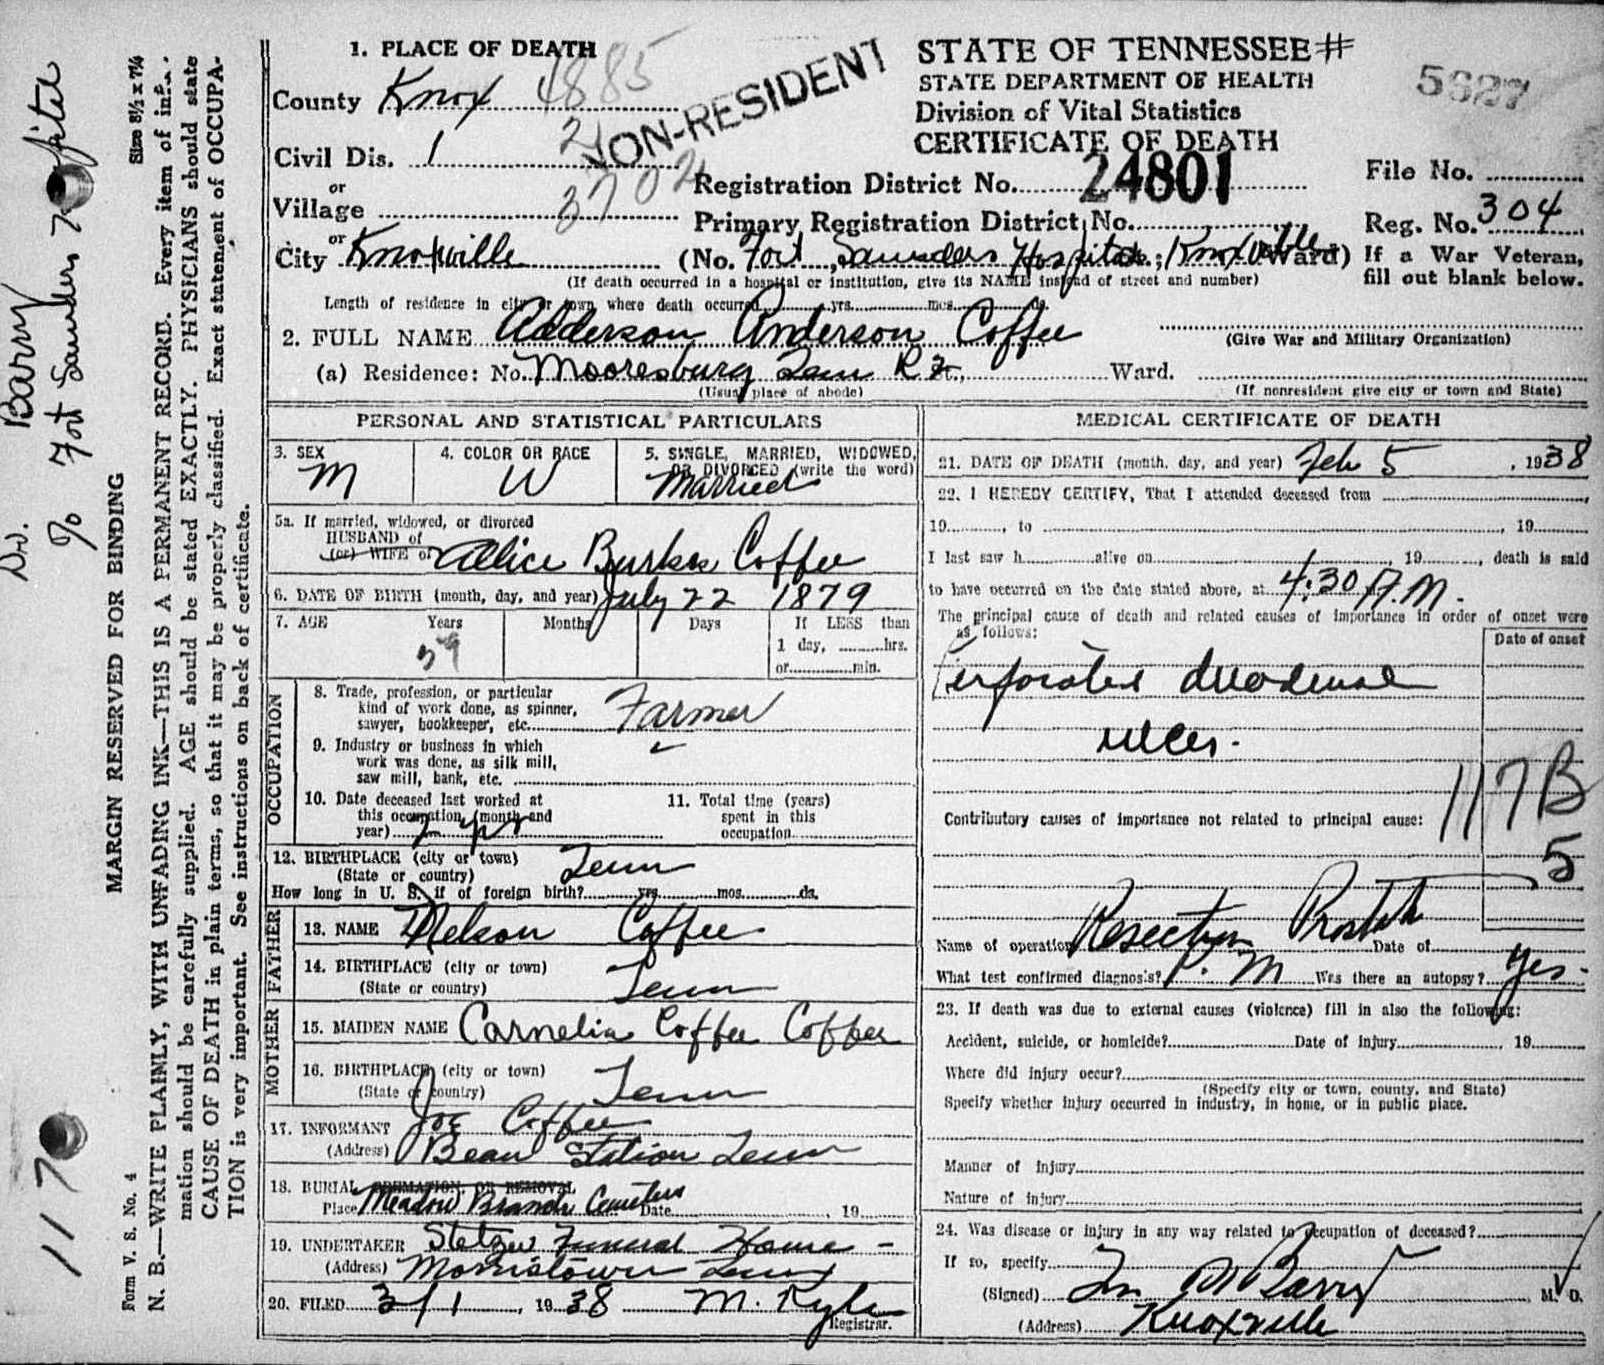 1. PLACE OF DEATH
County Knox 4885
Civil Dis. 1 21
or
Village 3702
or
City Knoxville (No. Fort Saunders Hospital; Knoxville Ward)
(If death occurred in a hospital or institution, give its NAME instead of street and number)
Length of residence in city or town where death occurred yrs. mos. ds.
NON-RESIDENT
STATE OF TENNESSEE #
STATE DEPARTMENT OF HEALTH
Division of Vital Statistics
CERTIFICATE OF DEATH
5627
24801
Registration District No.
Primary Registration District No.
File No.
Reg. No. 304
If a War Veteran,
fill out blank below.
2. FULL NAME Adderson Anderson Coffee
(Give War and Military Organization)
(a) Residence: No. Mooresburg Tenn R St., Ward.
(Usual place of abode) (If nonresident give city or town and State)
PERSONAL AND STATISTICAL PARTICULARS
3. SEX
M
4. COLOR OR RACE
W
5. SINGLE, MARRIED, WIDOWED,
OR DIVORCED (write the word)
Married
5a. If married, widowed, or divorced
HUSBAND of
(or) WIFE of Allice Burkes Coffee
6. DATE OF BIRTH (month, day, and year) July 22 1879
7. AGE Years Months Days If LESS than
1 day, hrs.
or min.
59
OCCUPATION
8. Trade, profession, or particular
kind of work done, as spinner,
sawyer, bookkeeper, etc. Farmer
9. Industry or business in which
work was done, as silk mill,
saw mill, bank, etc.
10. Date deceased last worked at
this occupation (month and
year) 2 yrs
11. Total time (years)
spent in this
occupation
12. BIRTHPLACE (city or town)
(State or country) Tenn
How long in U. S. if of foreign birth? yrs. mos. ds.
FATHER
13. NAME Nelson Coffee
14. BIRTHPLACE (city or town)
(State or country) Tenn
MOTHER
15. MAIDEN NAME Carnelia Coffee Coffee
16. BIRTHPLACE (city or town)
(State or country) Tenn
17. INFORMANT Joe Coffee
(Address) Bean Station Tenn
18. BURIAL, CREMATION, OR REMOVAL
Place Meadow Branch Cemetery Date , 19
19. UNDERTAKER Stetzer Funeral Home
(Address) Morristown Tenn
20. FILED 3/1, 1938 M. Kyle
Registrar.
MEDICAL CERTIFICATE OF DEATH
21. DATE OF DEATH (month, day, and year) Feb 5, 1938
22. I HEREBY CERTIFY, That I attended deceased from
19 , to , 19
I last saw h alive on 19 , death is said
to have occurred on the date stated above, at 4:30 A.M.
The principal cause of death and related causes of importance in order of onset were
as follows:
Date of onset
Perforated duodenal
ulcer.
117B
5
Contributory causes of importance not related to principal cause:
Name of operation Resection Prostate Date of
What test confirmed diagnosis? P. M Was there an autopsy? Yes.
23. If death was due to external causes (violence) fill in also the following:
Accident, suicide, or homicide? Date of injury , 19
Where did injury occur?
(Specify city or town, county, and State)
Specify whether injury occurred in industry, in home, or in public place.
Manner of injury
Nature of injury
24. Was disease or injury in any way related to occupation of deceased?
If so, specify
(Signed) Barry M. D.
(Address) Knoxville
Dr. Barry
% Fort Saunders Hospital
117
MARGIN RESERVED FOR BINDING
Size 8½ x 7¼
Form V. S. No. 4
N. B.—WRITE PLAINLY, WITH UNFADING INK—THIS IS A PERMANENT RECORD. Every item of infor-
mation should be carefully supplied. AGE should be stated EXACTLY. PHYSICIANS should state
CAUSE OF DEATH in plain terms, so that it may be properly classified. Exact statement of OCCUPA-
TION is very important. See instructions on back of certificate.